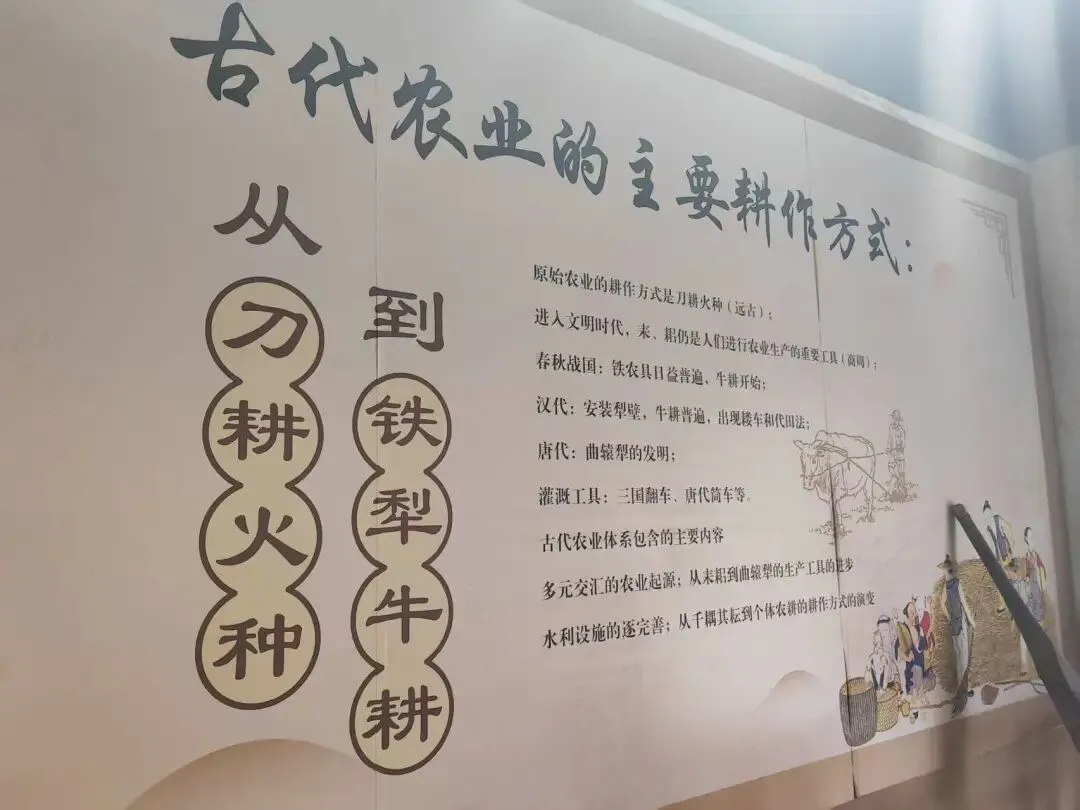 古代农业的主要耕作方式：
从刀耕火种
到铁犁牛耕
原始农业的耕作方式是刀耕火种（远古）；
进入文明时代，耒、耜仍是人们进行农业生产的重要工具（商周）；
春秋战国：铁农具日益普遍，牛耕开始；
汉代：安装犁壁，牛耕普遍，出现耧车和代田法；
唐代：曲辕犁的发明；
灌溉工具：三国翻车、唐代筒车等。
古代农业体系包含的主要内容
多元交汇的农业起源；从耒耜到曲辕犁的生产工具的进步
水利设施的逐完善；从千耦其耘到个体农耕的耕作方式的演变